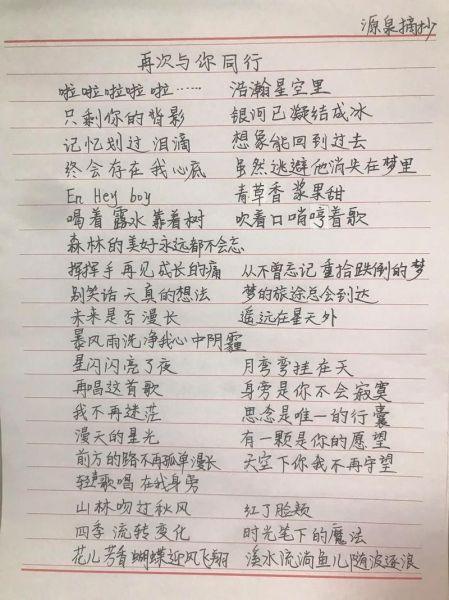 源泉摘抄
再次与你同行
啦啦啦啦啦…… 浩瀚星空里
只剩你的背影 银河已凝结成冰
记忆划过泪滴 想象能回到过去
终会存在我心底 虽然逃避他消失在梦里
En Hey boy 青草香 浆果甜
喝着露水靠着树 吹着口哨哼着歌
森林的美好永远都不会忘
挥挥手再见成长的痛 从不曾忘记重拾跌倒的梦
别笑话天真的想法 梦的旅途总会到达
未来是否漫长 遥远在星天外
暴风雨洗净我心中阴霾
星闪闪亮了夜 月弯弯挂在天
再唱这首歌 身旁是你不会寂寞
我不再迷茫 思念是唯一的行囊
漫天的星光 有一颗是你的愿望
前方的路不再孤单漫长 天空下你我不再守望
轻声歌唱在我身旁
山林吻过秋风 红了脸颊
四季流转变化 时光笔下的魔法
花儿芳香蝴蝶迎风飞翔 溪水流淌鱼儿随波逐浪